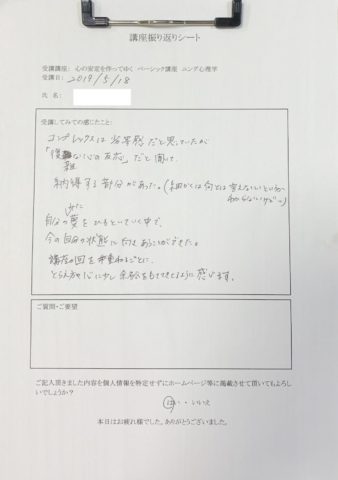 講座振り返りシート
受講講座： 心の安定を作ってゆく ベーシック講座 ユング心理学
受講日： 2019/5/18
氏 名：
受講してみての感じたこと：
コンプレックスは劣等感だと思っていたが
「複雑な心の反応」だと聞いて、
納得する部分があった。（細かくは何とは言えないというか
わからないけど…）
自分の夢をひもといていく中で、
今の自分の状態に向きあうことができた。
講座の回を重ねるごとに、
とらえ方や心に少し余裕をもててきたように感じます。
ご質問・ご要望
ご記入頂きました内容を個人情報を特定せずにホームページ等に掲載させて頂いてもよろし
いでしょうか？
はい ・ いいえ
本日はお疲れ様でした。ありがとうございました。